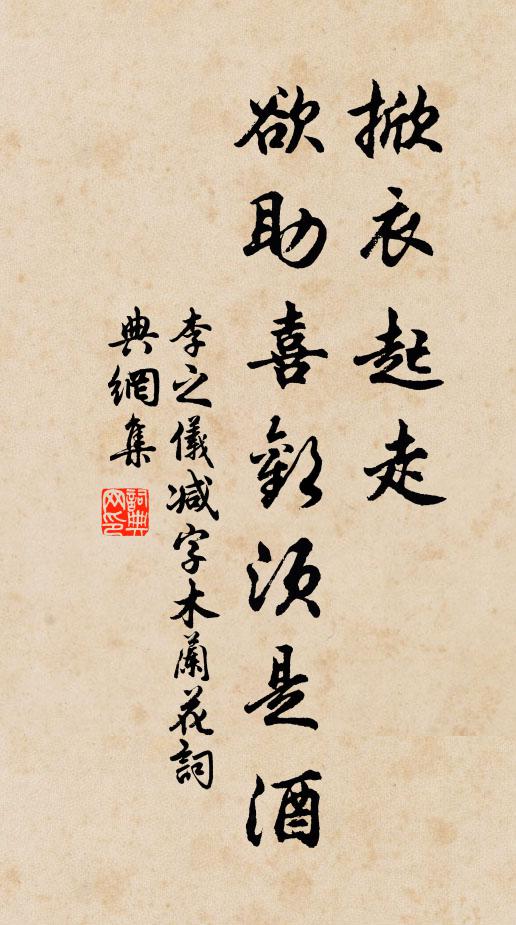 掀衣起走
欲助喜歡須是酒
李之儀减字木蘭花詞
典網集
詞典網印